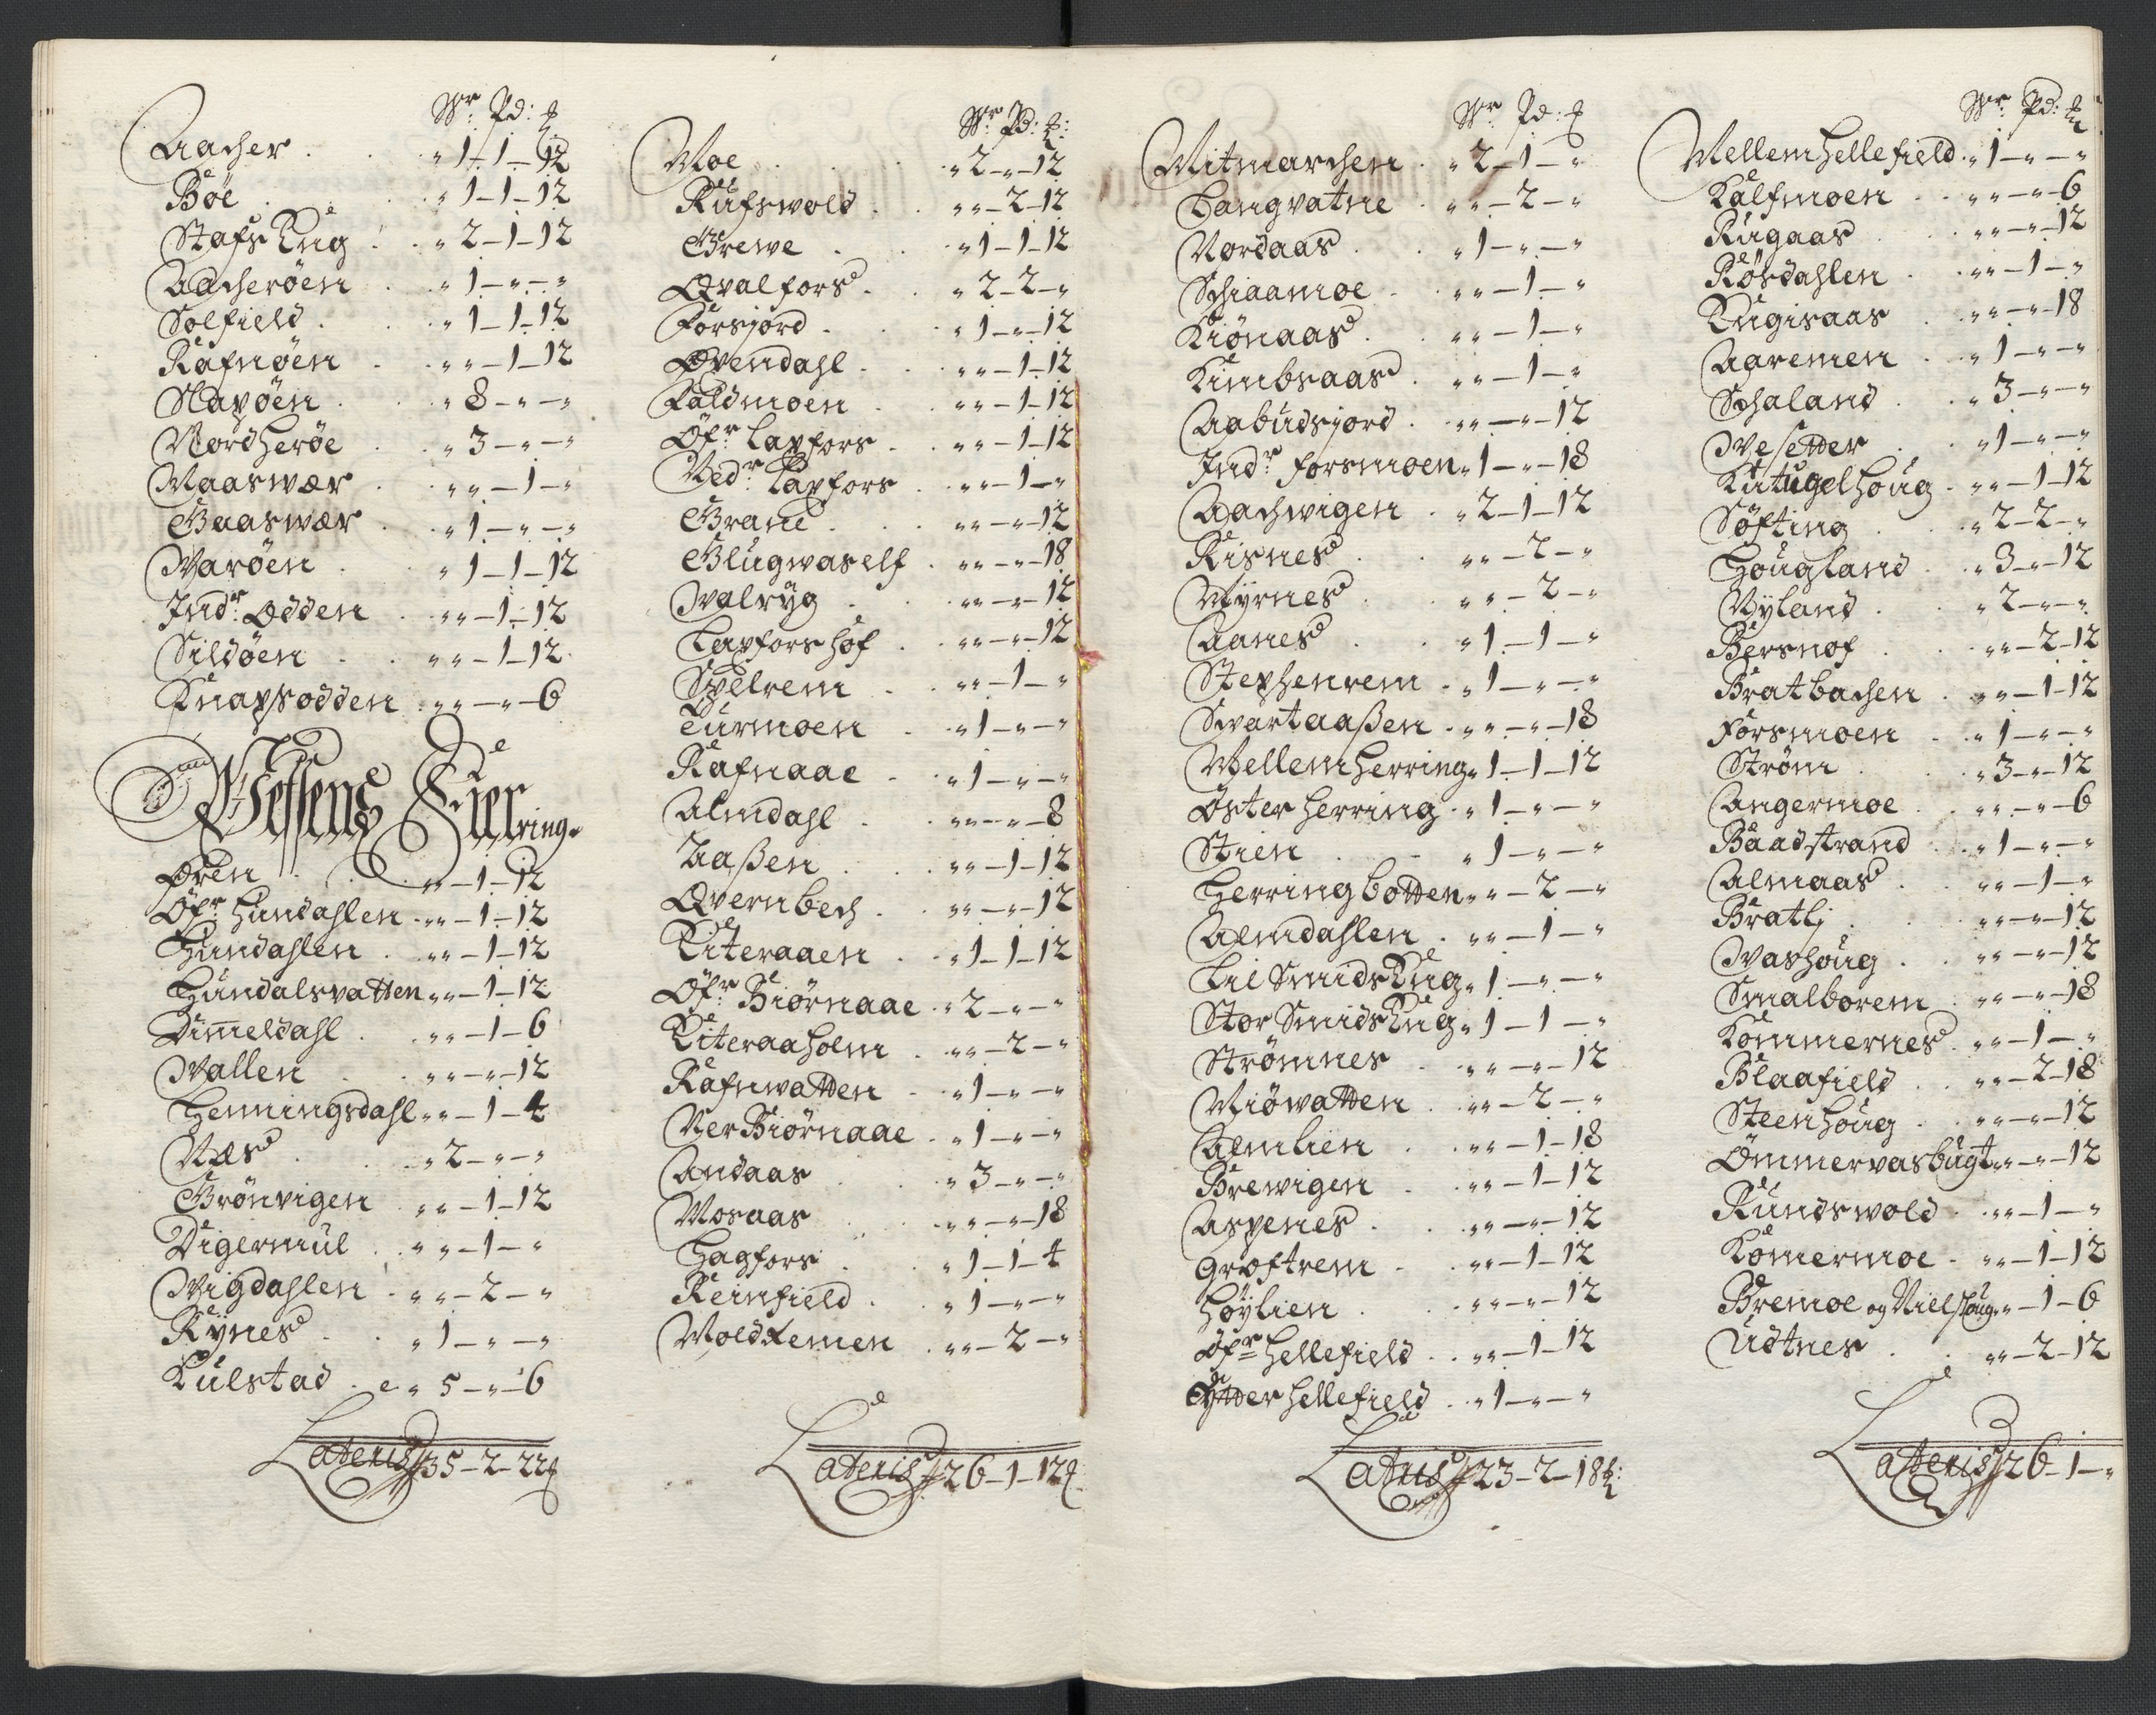 Wr Pd: ℔
Aacher . . „ 1 – 1 – 12
Böe . . „ 1 – 1 – 12
Stafs Eng . . „ 2 – 1 – 12
Aacheröen . „ 1 – „ – „
Solfield . . „ 1 – 1 – 12
Rafnöen . „ „ – 1 – 12
Slapöen . . „ 8 – „ – „
Nordheröe . „ 3 – „ – „
Maaswær . „ „ – 1 – „
Gaaswær . „ 1 – „ – „
Waröen . „ 1 – 1 – 12
Indr: Odden . „ „ – 1 – 12
Sildöen . . „ „ – 1 – 12
Knapsodden . „ „ – „ – 6
Weffens Fierring.
Øren . . „ „ – 1 – 12
Öfr: Hundahlen . „ „ – 1 – 12
Hundahlen . „ „ – 1 – 12
Hundalsvatten „ „ – 1 – 12
Dimeldahl . „ „ – 1 – 6
Wallen . . „ „ – „ – 12
Henningsdahl „ „ – 1 – 4
Næs . . „ 2 – „ – „
Grönvigen . „ „ – 1 – 12
Digermul . „ „ – 1 – „
Vigdahlen . „ „ – 2 – „
Rÿnes . . „ 1 – „ – „
Kulstad . „ 5 – „ – 6
Lateris 35 – 2 – 22 ℔
Wr: Pd: ℔:
Moe . . „ 2 – „ – 12
Rufswold . „ „ – 2 – 12
Grewe . „ 1 – 1 – 12
Qvalfors . . „ 2 – 2 – „
Forsjord . . „ 1 – „ – 12
Øvendahl . . „ „ – 1 – 12
Faldmoen . „ „ – 1 – 12
Öfr: Lapfors . „ „ – 1 – 12
Nedr: Lapfors . „ „ – 1 – „
Grane . . „ „ – „ – 12
Glugwaself . „ „ – „ – 18
Walryg . . „ „ – „ – 12
Lapfors hof . „ „ – „ – 12
Spelrem . „ „ – 1 – „
Turmoen . „ 1 – „ – „
Rafnaae . „ 1 – „ – „
Almdahl . „ „ – „ – 8
Aaßen . . „ „ – 1 – 12
Qvernbech . „ „ – „ – 12
Eiteraaen . „ 1 – 1 – 12
Öfr: Biörnaae . „ 2 – „ – „
Eiteraaholm . „ „ – 2 – „
Rafnwatten . „ 1 – „ – „
Ner Biörnaae . „ 1 – „ – „
Andaas . . „ 3 – „ – „
Mosaas . . „ „ – „ – 18
Hagfors . . „ 1 – 1 – 4
Reinfield . „ 1 – „ – „
Woldremen . „ „ – 2 – „
Lateris 26 – 1 – 12 ℔
Wr Pd: ℔
Mitmarchen . „ 2 – 1 – „
Langvatne . „ „ – 2 – „
Nordaas . . „ 1 – „ – „
Schiaamoe . „ „ – 1 – „
Kiönaas . . „ „ – 1 – „
Kimbsaas . „ „ – 1 – „
Aabudsjord . „ „ – „ – 12
Indr: forsmoen „ 1 – „ – 18
Aachwigen . „ 2 – 1 – 12
Risnes . . „ „ – 2 – „
Myrnes . . „ „ – 2 – „
Aanes . . „ 1 – 1 – „
Stephenrem . „ 1 – „ – „
Swartaaßen . „ „ – „ – 18
Mellem herring „ 1 – 1 – 12
Öster herring . „ 1 – „ – „
Stien . . „ 1 – „ – „
Herringbotten „ „ – 2 – „
Almdahlen . „ „ – 1 – „
Lil Smids Eng „ 1 – „ – „
Stor Smids Eng „ 1 – 1 – „
Strömnes . „ „ – „ – 12
Miövatten . „ „ – 2 – „
Almlien . „ „ – 1 – 18
Brewigen . „ „ – 1 – 12
Aspenes . . „ „ – „ – 12
Groftrem . „ „ – 1 – 12
Höÿlien . . „ „ – „ – 12
Öfr: Hellefield . . „ „ – 1 – 12
Ÿtter hellefield . „ 1 – „ – „
Latus 23 – 2 – 18 ℔:
Wr: Pd: ℔
Mellem hellefield . „ 1 – „ – „
Kalfmoen . . „ „ – „ – 6
Rugaas . . „ „ – „ – 12
Rösdahlen . „ „ – 1 – „
Engisaas . „ „ – „ – 18
Aaremen . „ 1 – „ – „
Schaland . „ 3 – „ – „
Wesetter . . „ 1 – „ – „
Kutugelhoug . „ „ – 1 – 12
Söfting . . „ 2 – 2 – „
Hougland . „ 3 – „ – 12
Nÿland . . „ 2 – „ – „
Bersnof . . „ „ – 2 – 12
Bratbachen . „ „ – 1 – 12
Forsmoen . „ 1 – „ – „
Ström . . „ 3 – „ – 12
Angermoe . . „ „ – „ – 6
Baadstrand . „ 1 – „ – „
Almaas . . „ „ – 1 – „
Bratli . . „ „ – „ – 12
Washoug . . „ „ – „ – 12
Smalborem . „ „ – „ – 18
Kommernes . „ „ – 1 – „
Blaafield . . „ „ – 2 – 18
Steenhoug . „ „ – „ – 12
Ömmervasbugt „ „ – „ – 12
Rundswold . „ „ – 1 – „
Komermoe . „ „ – 1 – 12
Bremoe og Nielshoug „ „ – 1 – 6
Udtnes . . „ „ – 2 – 12
Lateris 26 – 1 – „